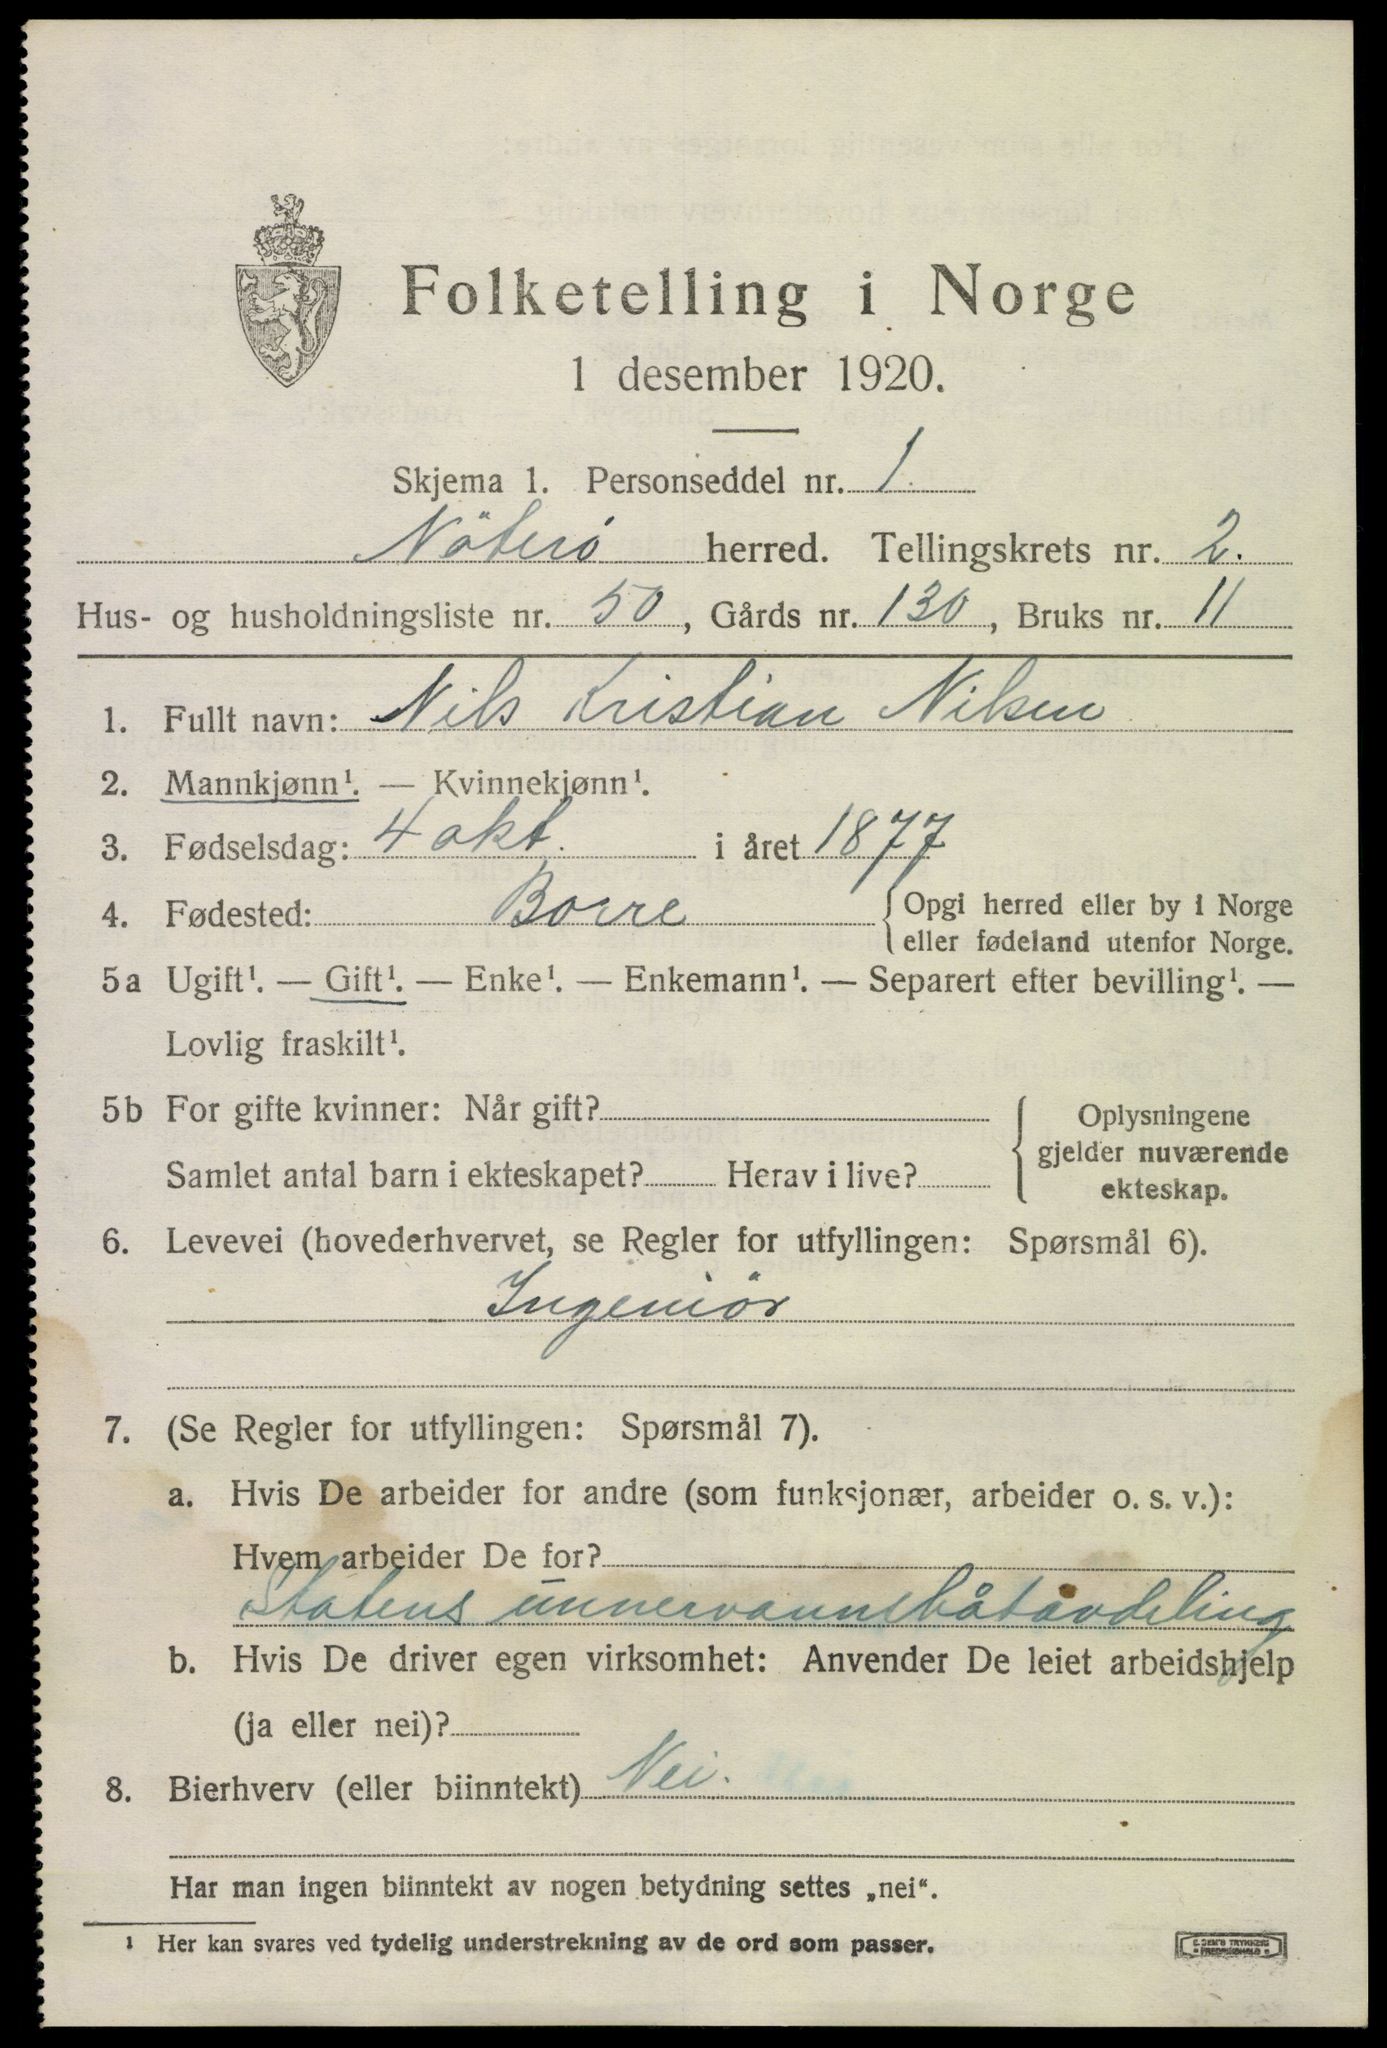 Folketelling i Norge
1 desember 1920.
Skjema 1. Personseddel nr. 1.
Nöterö herred. Tellingskrets nr. 2.
Hus- og husholdningsliste nr. 50, Gårds nr. 130, Bruks nr. 11
1. Fullt navn: Nils Kristian Nilsen
2. Mannkjønn¹. — Kvinnekjønn¹.
3. Fødselsdag: 4 okt. i året 1877
4. Fødested: Borre { Opgi herred eller by i Norge
eller fødeland utenfor Norge.
5a Ugift¹. — Gift¹. — Enke¹. — Enkemann¹. — Separert efter bevilling¹. —
Lovlig fraskilt¹.
5b For gifte kvinner: Når gift? { Oplysningene
gjelder nuværende
ekteskap.
Samlet antal barn i ekteskapet? Herav i live?
6. Levevei (hovederhvervet, se Regler for utfyllingen: Spørsmål 6).
Ingeniör
7. (Se Regler for utfyllingen: Spørsmål 7).
a. Hvis De arbeider for andre (som funksjonær, arbeider o. s. v.):
Hvem arbeider De for?
Statens unnervannsbåtavdeling
b. Hvis De driver egen virksomhet: Anvender De leiet arbeidshjelp
(ja eller nei)?
8. Bierhverv (eller biinntekt) Nei.
Har man ingen biinntekt av nogen betydning settes „nei“.
¹ Her kan svares ved tydelig understrekning av de ord som passer.
TRYKKERI
FREDRIKSHALD